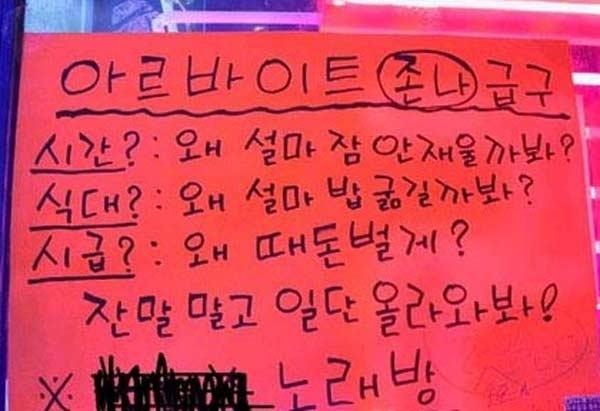 아르바이트 존나 급구
시간?: 왜 설마 잠 안재울까봐?
식대?: 왜 설마 밥 굶길까봐?
시급?: 왜 떼돈벌게?
잔말 말고 일단 올라와봐!
※ 노래방